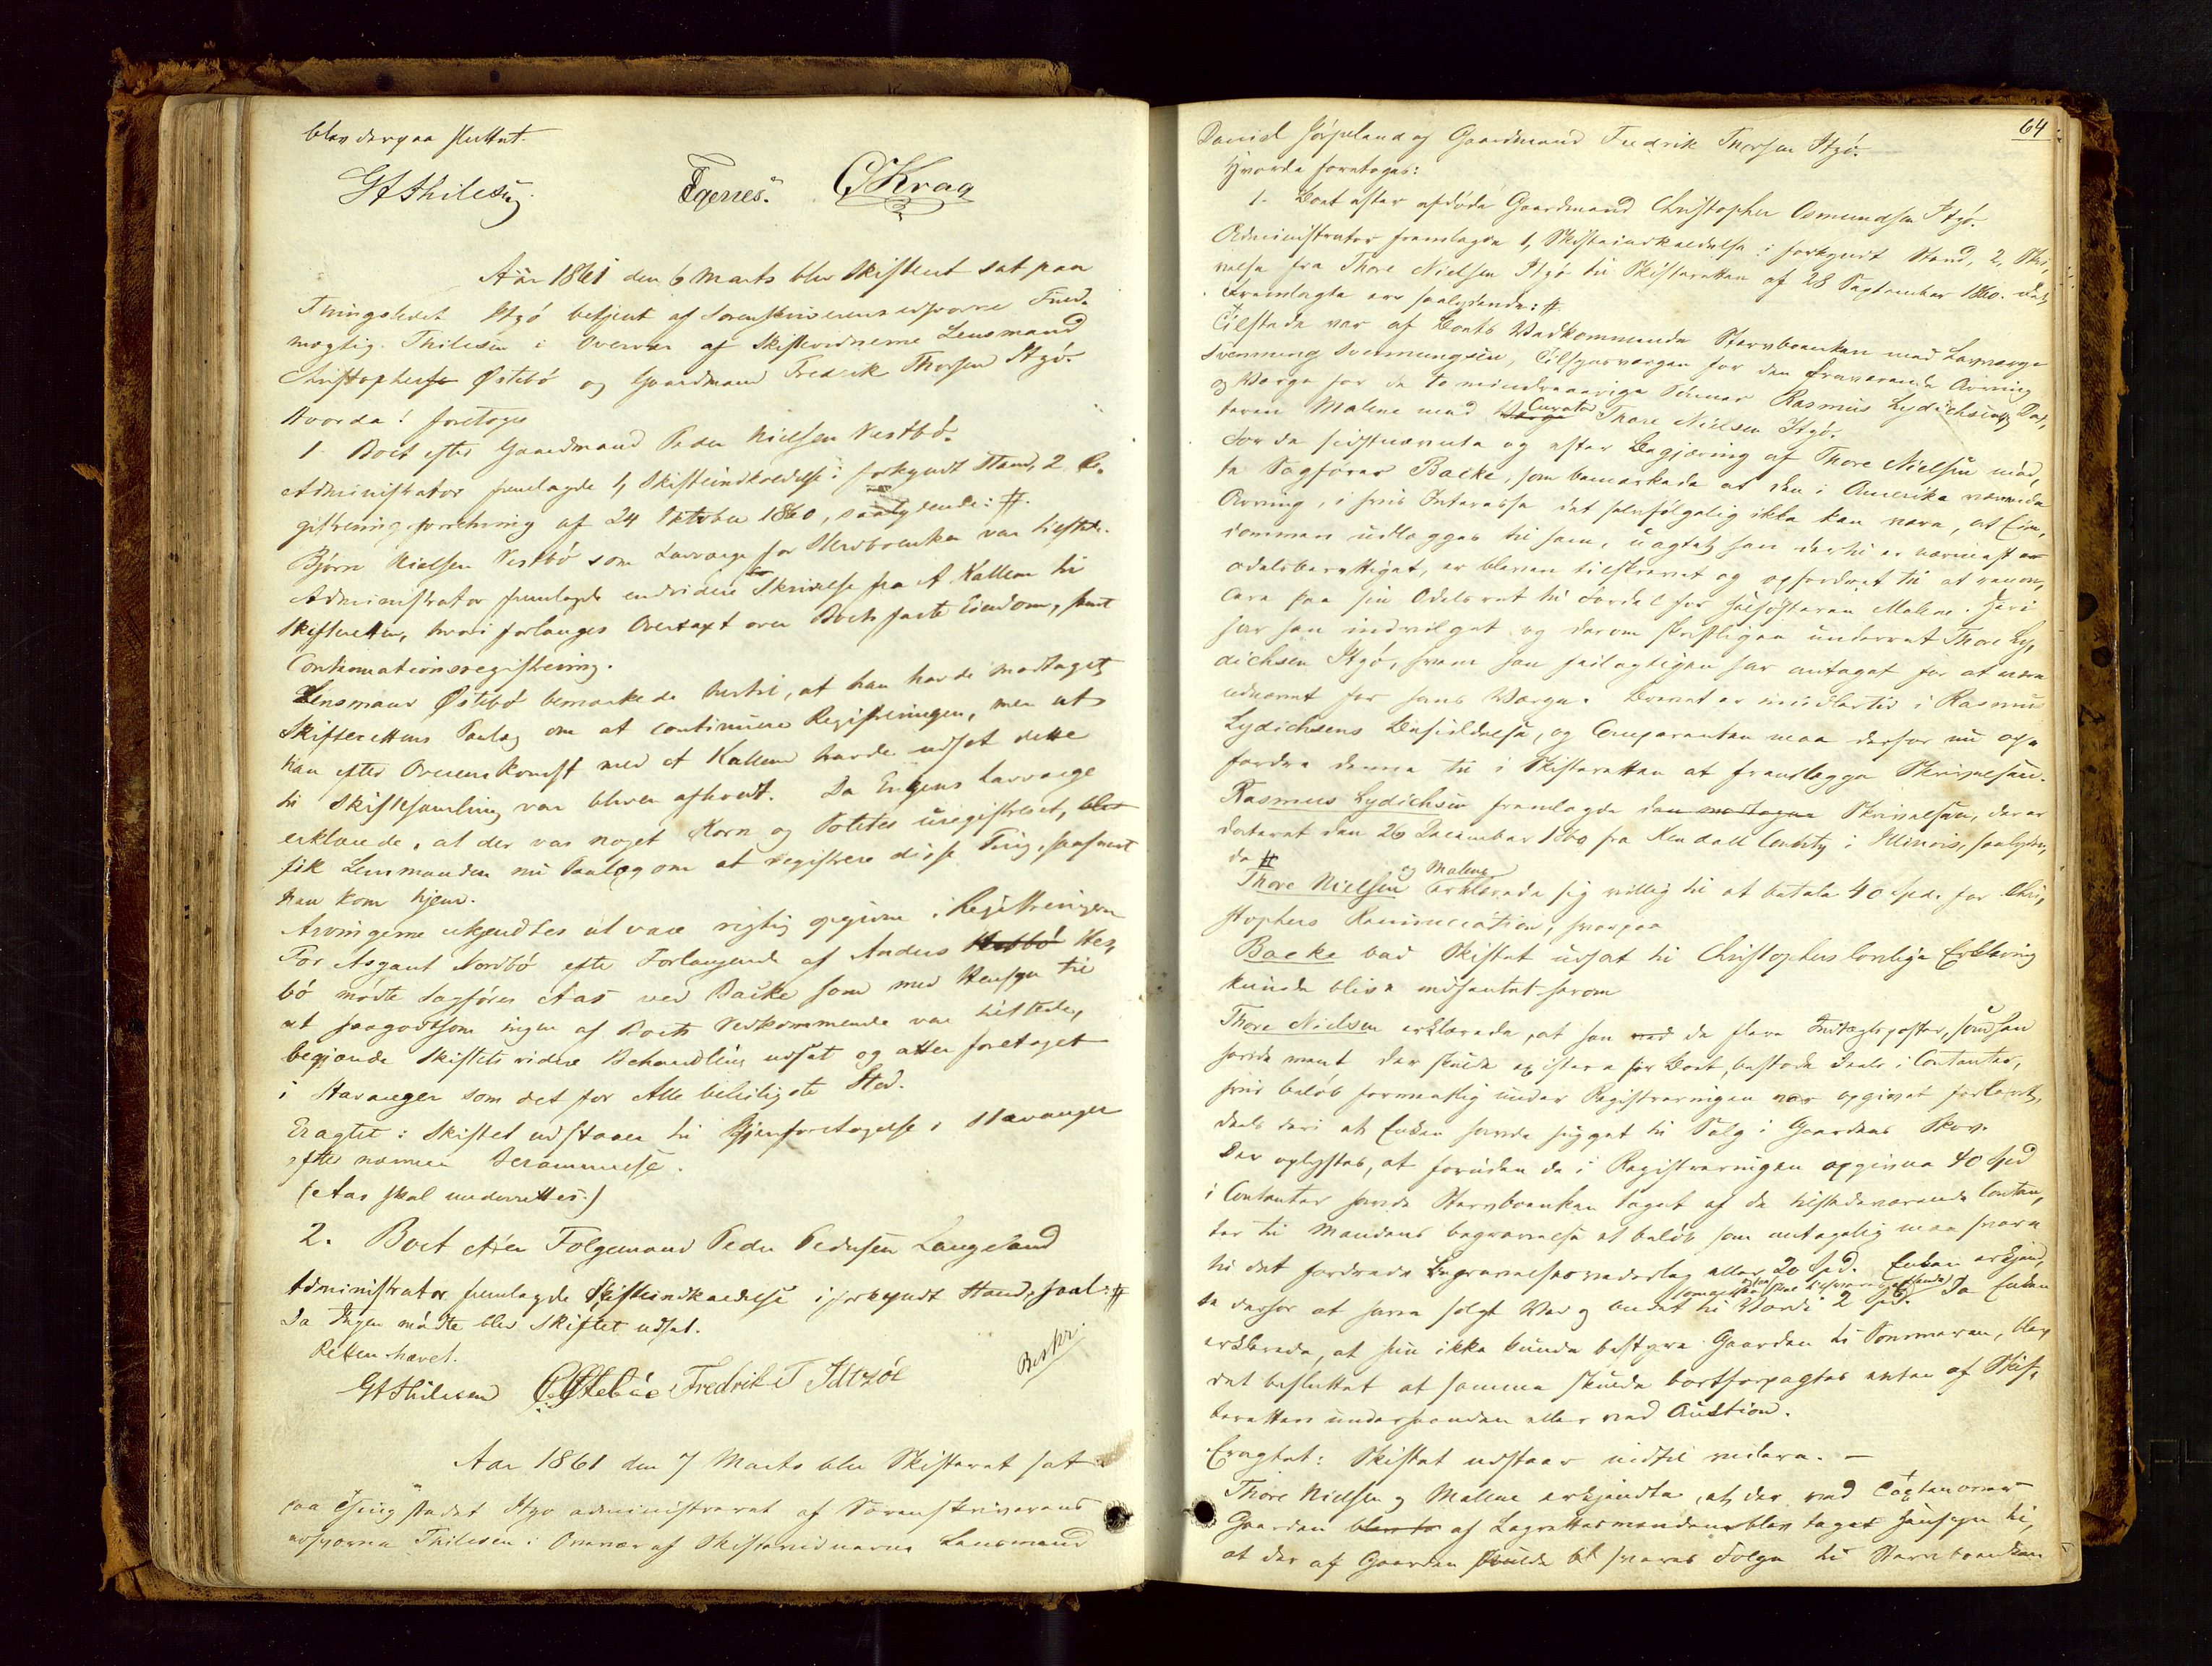 blev derpaa sluttet.
GA Thilesen. Egenes. CKrag
Aar 1861 den 6 Marts blev Skifteret sat paa
Thingstedet Stgö betjent af Sorenskriverens edsvorne Fuld-
mægtig Thilesen i Overvær af Skiftevidnerne Lensmand
Christophersen Østebö og Gaardmand Fredrik Thorsen Stgö.
Hvorda! foretoges
1. Boet efter Gaardmand Peder Nielsen Vestbö.
Administrator fremlagde 1, Skifteindkaldelse i forkyndt Stand, 2 Re-
gistreringsforretning af 24 Oktober 1860, saalydende: #.
Bjørn Nielsen Vestbö som Laugværge for Sterboenken var tilstede.
Administrator fremlagde endvidere Skrivelse fra A Kallem til
Skifteretten, hvori forlanges Overtaxt over Boets faste Eiendom, samt
Continuationsregistrering.
Lensmand Østebö bemærkede hertil, at han havde modtaget
Skifterettens Paalæg om at continuere Registreringen, men at
han efter Overenskomst med A Kallem havde udsat dette
til Skiftesamling var bleven afholdt. Da Enkens Laugværge
erklærede, at der var noget Korn og Poteter uregistreret, blev
fik Lensmanden nu Paalæg om at registrere disse Ting, saasnart
han kom hjem.
Arvingerne erkjendtes at være rigtig opgivne i Registreringen
For Asgaut Nordbö efter Forlangende af Anders Vestbö Hes-
bö mødte Sagförer Aas ved Backe som med Hensyn til
at saagodtsom ingen af Boets Vedkommende var tilstede,
begjærede Skiftets videre Behandling udsat og atter foretaget
i Stavanger som det for Alle beleiligste Sted.
Eragtet: Skiftet udstaaer til Gjenforetagelse i Stavanger
efter nærmere Berammelse.
(Aas skal underrettes.)
2. Boet efter Følgemand Peder Pedersen Langeland
Administrator fremlagde Skifteindkaldelse i forkyndt Stand, saal: #
Da Ingen mødte blev Skiftet udsat.
Retten hævet.
GA Thilesen C Østebøe Fredrik T Idtzöe
Beskr.
Aar 1861 den 7 Marts blev Skifteret sat
paa Thingstedet Stgö administreret af Sorenskriverens
edsvorne Thilesen i Overvær af Skiftevidnerne Lensmand
64
Daniel Jörpeland og Gaardmand Fredrik Thorsen Stgö.
Hvorda foretoges:
1. Boet efter afdöde Gaardmand Christopher Osmundsen Stgö.
Administrator fremlagde 1, Skifteindkaldelse i forkyndt Stand, 2, Skri-
velse fra Thore Nielsen Stgö til Skifteretten af 28 September 1860. Det
Fremlagte er saalydende: #.
Tilstede var af Boets Vedkommende Stervboenken med Laugværge
Svenning Svenningsen, Tilsynsværgen for den fraværende Arving
og Værge for de to mindreaarige Sönner Rasmus Lydichsen, Dat-
teren Malene med Værge Curator Thore Nielsen Stgö.
For de sidstnævnte og efter Begjæring af Thore Nielsen möd-
te Sagförer Backe, som bemærkede at den i Amerika værende
Arving, i hvis Interesse det selvfölgelig ikke kan være, at Eien-
dommen udlægges til ham, uagtet han dertil er nærmest
odelsberettiget, er bleven tilskrevet og opfordret til at renon-
cere paa sin Odelsret til Fordel for Halvsösteren Malene. Heri
har han indvilget og derom skriftligen underrettet Thore Ly-
dichsen Stgö, hvem han feilagtigen har antaget for at være
udnævnt for hans Værge. Brevet er imidlertid i Rasmus
Lydichsens Besiddelse, og Comparenten maa derfor nu op-
fordre denne til i Skifteretten at fremlægge Skrivelsen.
Rasmus Lydichsen fremlagde den modtagne Skrivelsen, der er
dateret den 26 December 1860 fra Kendall County i Illinois, saalyden-
de #
Thore Nielsen og Malene erklærede sig villig til at betale 40 Spd. for Chri-
stophers Renunciation, hvorpaa
Backe bad Skiftet udsat til Christophers lovlige Erklæring
kunde blive indhentet herom
Thore Nielsen erklærede, at han ved de flere Indtægtsposter, som han
havde ment der skulde existere for Boet, bestode deels i Contanter,
hvis Belöb formentlig under Registreringen var opgivet forlavt,
deels deri at Enken havde hugget til Salg i Gaardens Skov.
Der oplystes, at foruden de i Registreringen opgivne 40 Spd
i Contanter havde Stervboenken taget af de tilstedeværende Contan-
ter til Mandens begravelse et belöb som antagelig maa svare
til det fordrede Begravelsesvederlag eller 20 Spd. Enken erkjend-
te derfor at have solgt Ved og Andet til Værdi 2 Spd. Da Enken
erklærede, at hun ikke kunde bestyre Gaarden til Sommeren, blev
det besluttet at samme skulde bortforpagtes enten af Skif-
teretten underhaanden eller ved Auction.
Eragtet: Skiftet udstaar indtil videre. —
Thore Nielsen og Malene erkjendte, at der ved Taxten over
Gaarden blev to af Lagrettesmændene blev taget Hensyn til,
at der af Gaarden skulde bl svares Folge til Stervboenken